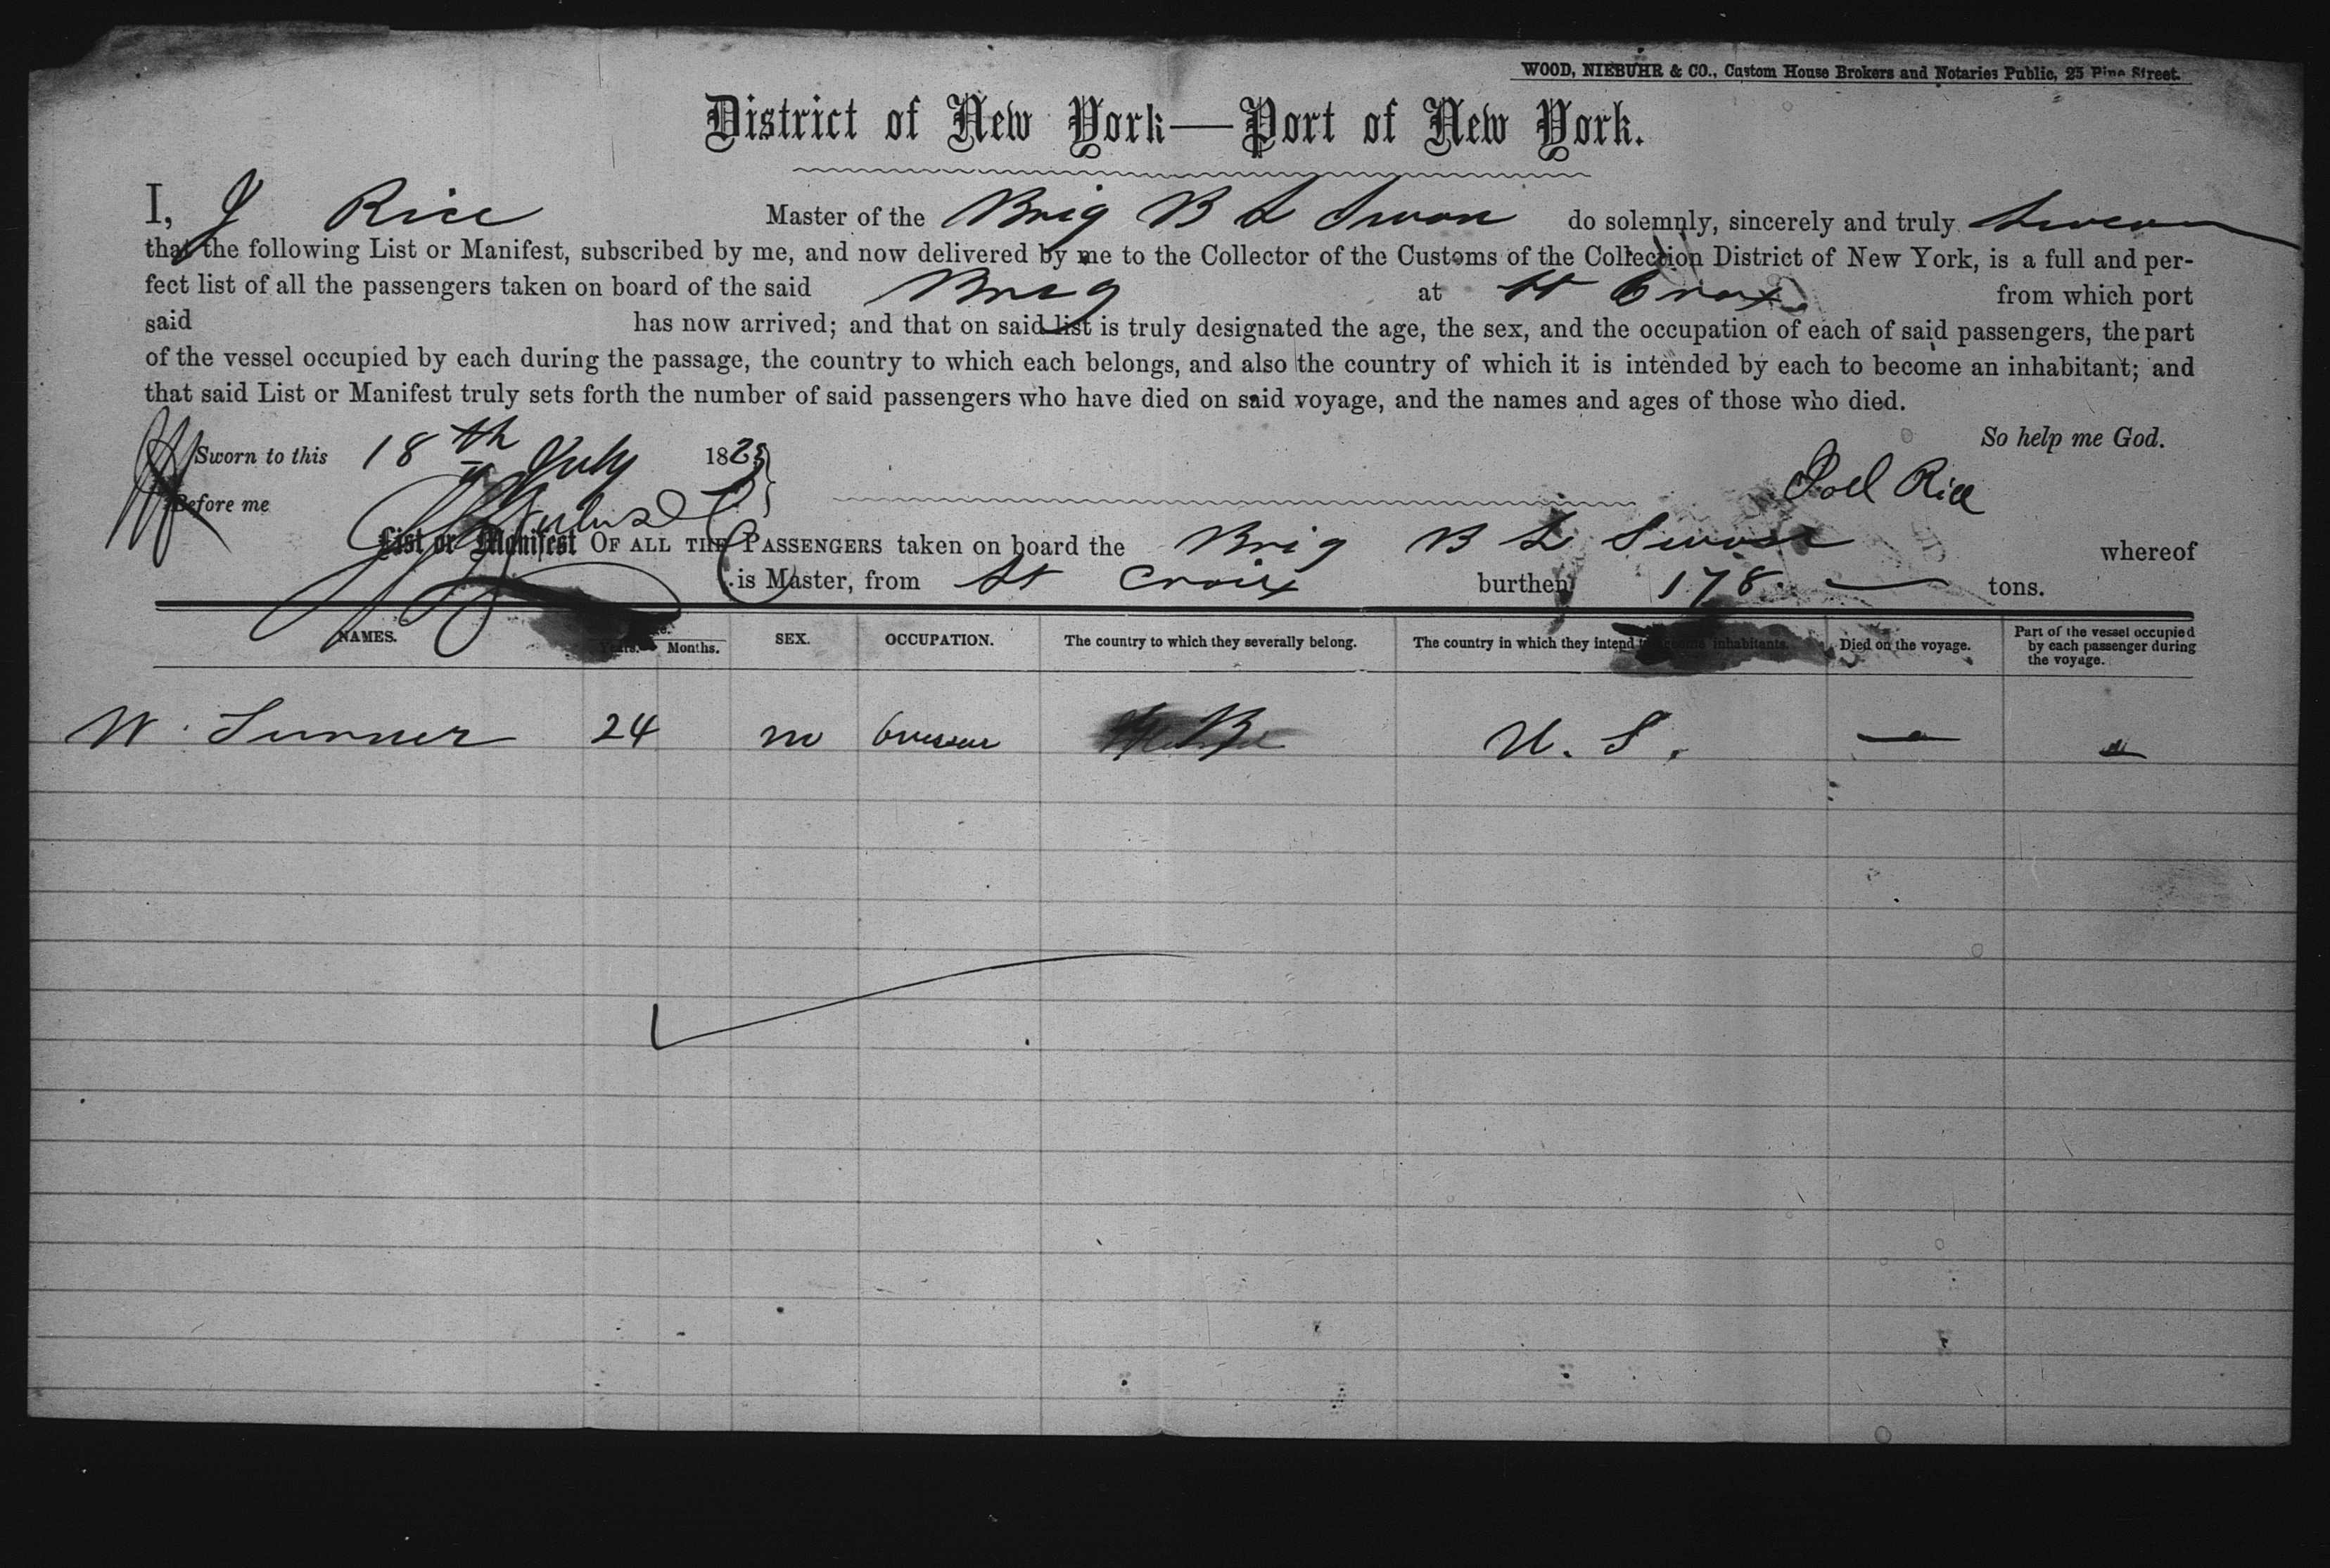 WOOD, NIEBUHR & CO., Custom House Brokers and Notaries Public, 25 Pine Street.
District of New York—Port of New York.
I, J Rice Master of the Brig B L Swan do solemnly, sincerely and truly swear
that the following List or Manifest, subscribed by me, and now delivered by me to the Collector of the Customs of the Collection District of New York, is a full and per-
fect list of all the passengers taken on board of the said Brig at St Croix from which port
said has now arrived; and that on said list is truly designated the age, the sex, and the occupation of each of said passengers, the part
of the vessel occupied by each during the passage, the country to which each belongs, and also the country of which it is intended by each to become an inhabitant; and
that said List or Manifest truly sets forth the number of said passengers who have died on said voyage, and the names and ages of those who died.
So help me God.
Sworn to this 18th July 18
Before me
Joel Rice
List or Manifest OF ALL THE PASSENGERS taken on board the Brig B L Swan whereof
is Master, from St Croix burthen 178 tons.
NAMES. Years. Months. SEX. OCCUPATION. The country to which they severally belong. The country in which they intend to become inhabitants. Died on the voyage. Part of the vessel occupied by each passenger during the voyage.
W. Turner 24 m Overseer U. S. —